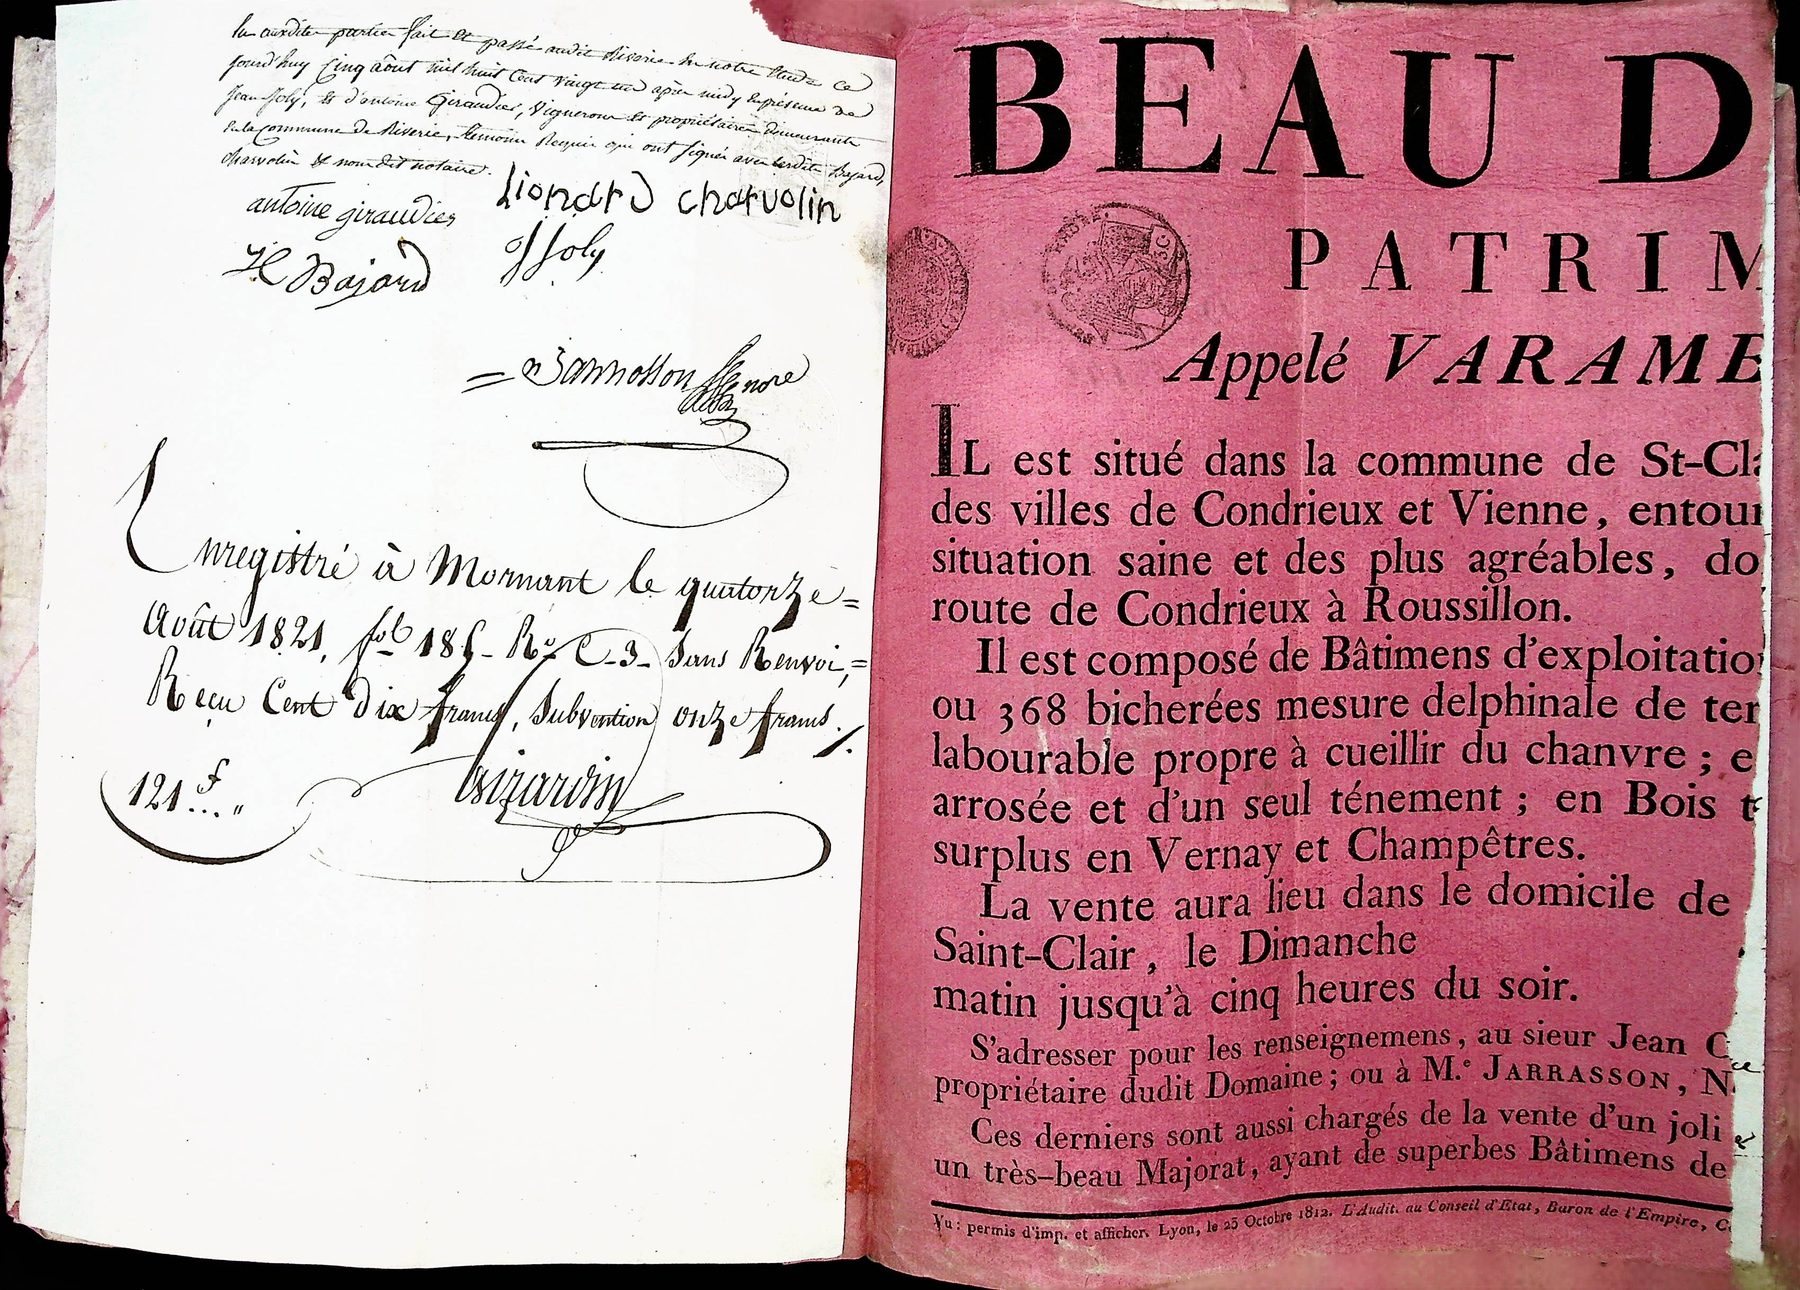 aux dites parties fait et passé audit Riverie en notre Etude ce
jourd'huy Cinq août mil huit Cent vingt un après midy en présence de
Jean Joly, et d'antoine Giraudier, Vignerons et propriétaires demeurants
en la Commune de Riverie, témoins Requis qui ont signés avec lesdits Bajard,
charvolin et nous dit notaire.
antoine giraudier Lionard charvolin
Bajard JJoly
Enregistré à Mornant le quatorze=
Août 1821, fol 185_ Ro C_3_ Sans Renvoi,=
Reçu Cent dix francs, Subvention onze francs./.
121f... "
Girardin
BEAU D
PATRIM
Appelé VARAME
IL est situé dans la commune de St-Cla
des villes de Condrieux et Vienne, entour
situation saine et des plus agréables, do
route de Condrieux à Roussillon.
Il est composé de Bâtimens d'exploitation
ou 368 bicherées mesure delphinale de ter
labourable propre à cueillir du chanvre ; e
arrosée et d'un seul ténement ; en Bois t
surplus en Vernay et Champêtres.
La vente aura lieu dans le domicile de
Saint-Clair, le Dimanche
matin jusqu'à cinq heures du soir.
S'adresser pour les renseignemens, au sieur Jean C
propriétaire dudit Domaine ; ou à M.e JARRASSON, N
Ces derniers sont aussi chargés de la vente d'un joli
un très-beau Majorat, ayant de superbes Bâtimens de
Vu : permis d'imp. et afficher. Lyon, le 23 Octobre 1812. L'Audit. au Conseil d'Etat, Baron de l'Empire, C